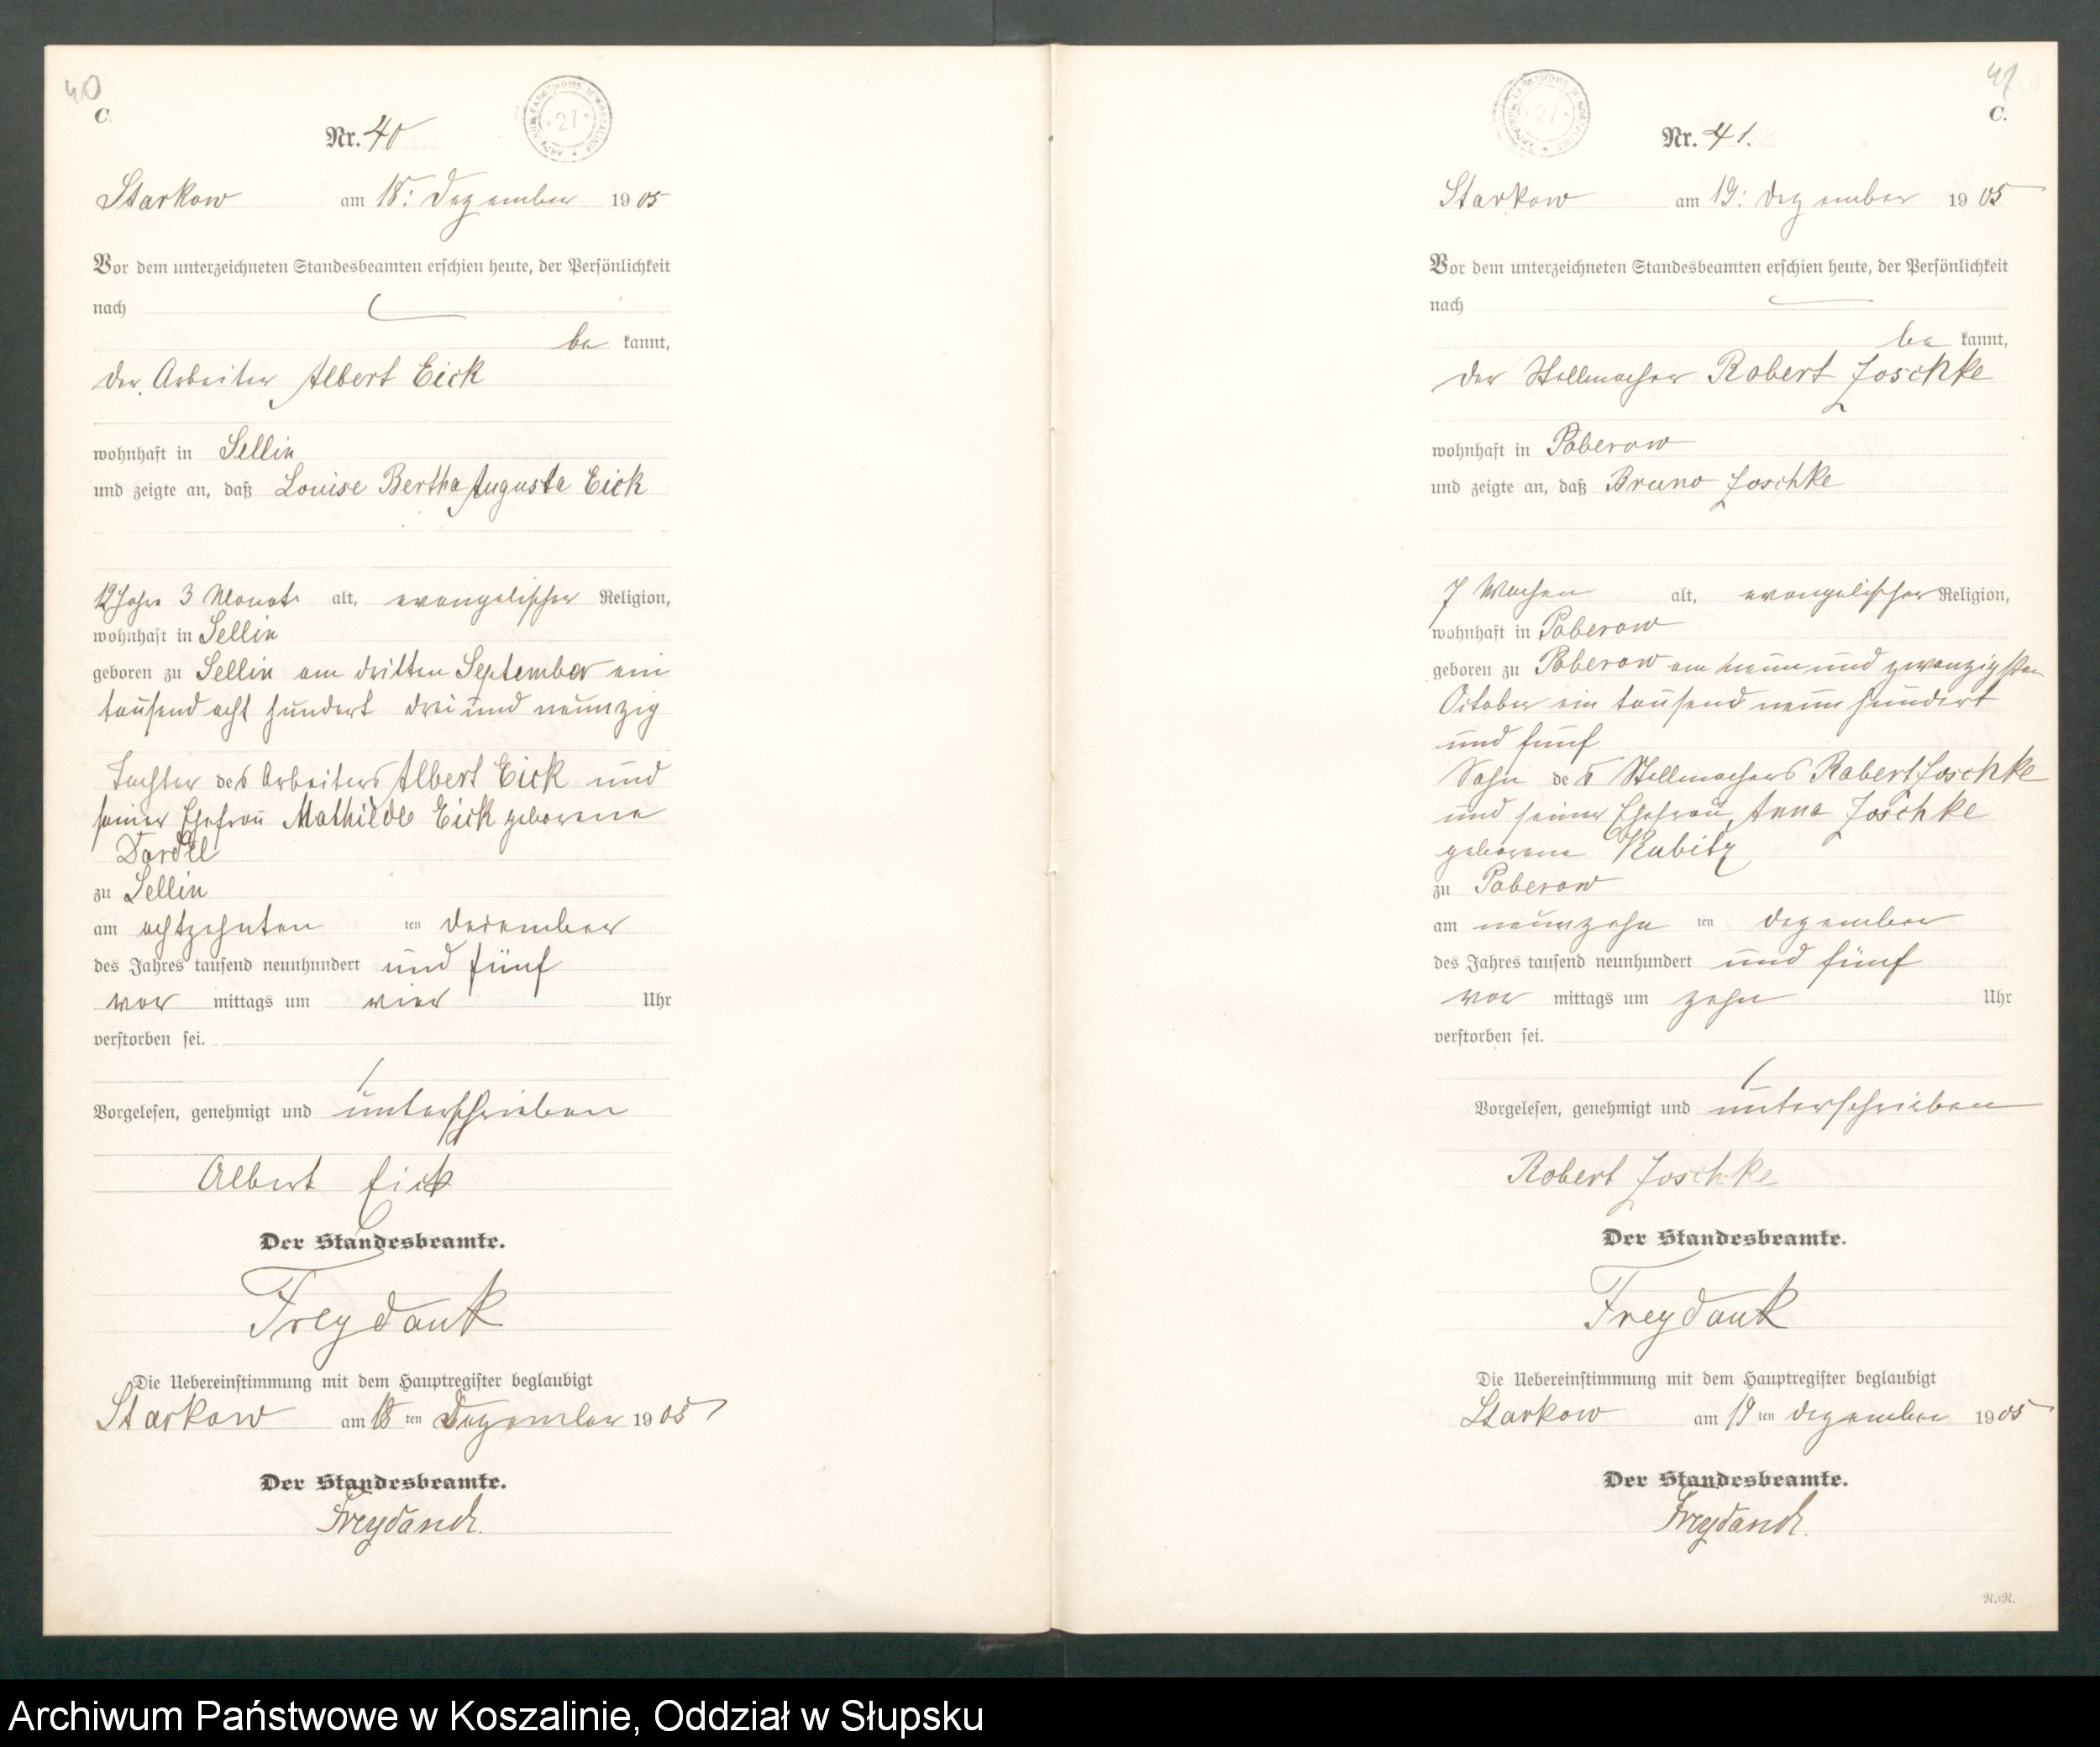 40
C.
Nr. 40
27
Starkow am 18: Dezember 1905
Vor dem unterzeichneten Standesbeamten erschien heute, der Persönlichkeit
nach
be kannt,
der Arbeiter Albert Eick
wohnhaft in Sellin
und zeigte an, daß Louise Bertha Auguste Eick
12 Jahre 3 Monate alt, evangelischer Religion,
wohnhaft in Sellin
geboren zu Sellin am dritten September ein
tausend acht hundert drei und neunzig
Tochter des Arbeiters Albert Eick und
seiner Ehefrau Mathilde Eick geborene
zu Sellin
am achtzehnten ten December
des Jahres tausend neunhundert und fünf
vor mittags um vier Uhr
verstorben sei.
Vorgelesen, genehmigt und unterschrieben
Albert Eick
Der Standesbeamte.
Freydank
Die Uebereinstimmung mit dem Hauptregister beglaubigt
Starkow am 18 ten Dezember 1905
Der Standesbeamte.
Freydanck.
41
C.
Nr. 41.
27
Starkow am 19: Dezember 1905
Vor dem unterzeichneten Standesbeamten erschien heute, der Persönlichkeit
nach
be kannt,
der Stellmacher Robert Joschke
wohnhaft in Poberow
und zeigte an, daß Bruno Joschke
7 Wochen alt, evangelischer Religion,
wohnhaft in Poberow
geboren zu Poberow am neun und zwanzigsten
October ein tausend neun hundert
und fünf
Sohn des Stellmachers Robert Joschke
und seiner Ehefrau, Anna Joschke
geborene Kubitz
zu Poberow
am neunzehn ten Dezember
des Jahres tausend neunhundert und fünf
vor mittags um zehn Uhr
verstorben sei.
Vorgelesen, genehmigt und unterschrieben
Robert Joschke
Der Standesbeamte.
Freydank
Die Uebereinstimmung mit dem Hauptregister beglaubigt
Starkow am 19 ten Dezember 1905
Der Standesbeamte.
Freydanck.
Archiwum Państwowe w Koszalinie, Oddział w Słupsku